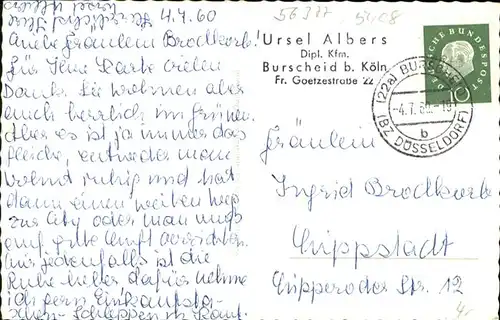 4.7.60
Liebe Fräulein Brodkorb!
Für Ihre Karte vielen
Dank. Sie wohnen aber
auch herrlich im Grünen.
Aber es ist ja immer das
gleiche, entweder man
wohnt ruhig und hat
dann einen weiten Weg
zur City oder man muß
auf gute Luft verzichten.
Mir jedenfalls ist die
Ruhe lieber dafür nehme
ich gern Einkaufsta-
schen-Schleppen in Kauf.
56377
Ursel Albers
Dipl. Kfm.
Burscheid b. Köln
Fr. Goetzestraße 22
DEUTSCHE BUNDESPOST
10
(22a) BURSCHEID
-4.7.60.-19
b
(BZ. DÜSSELDORF)
Fräulein
Ingrid Brodkorb
Lippstadt
Lipperoder Str. 12